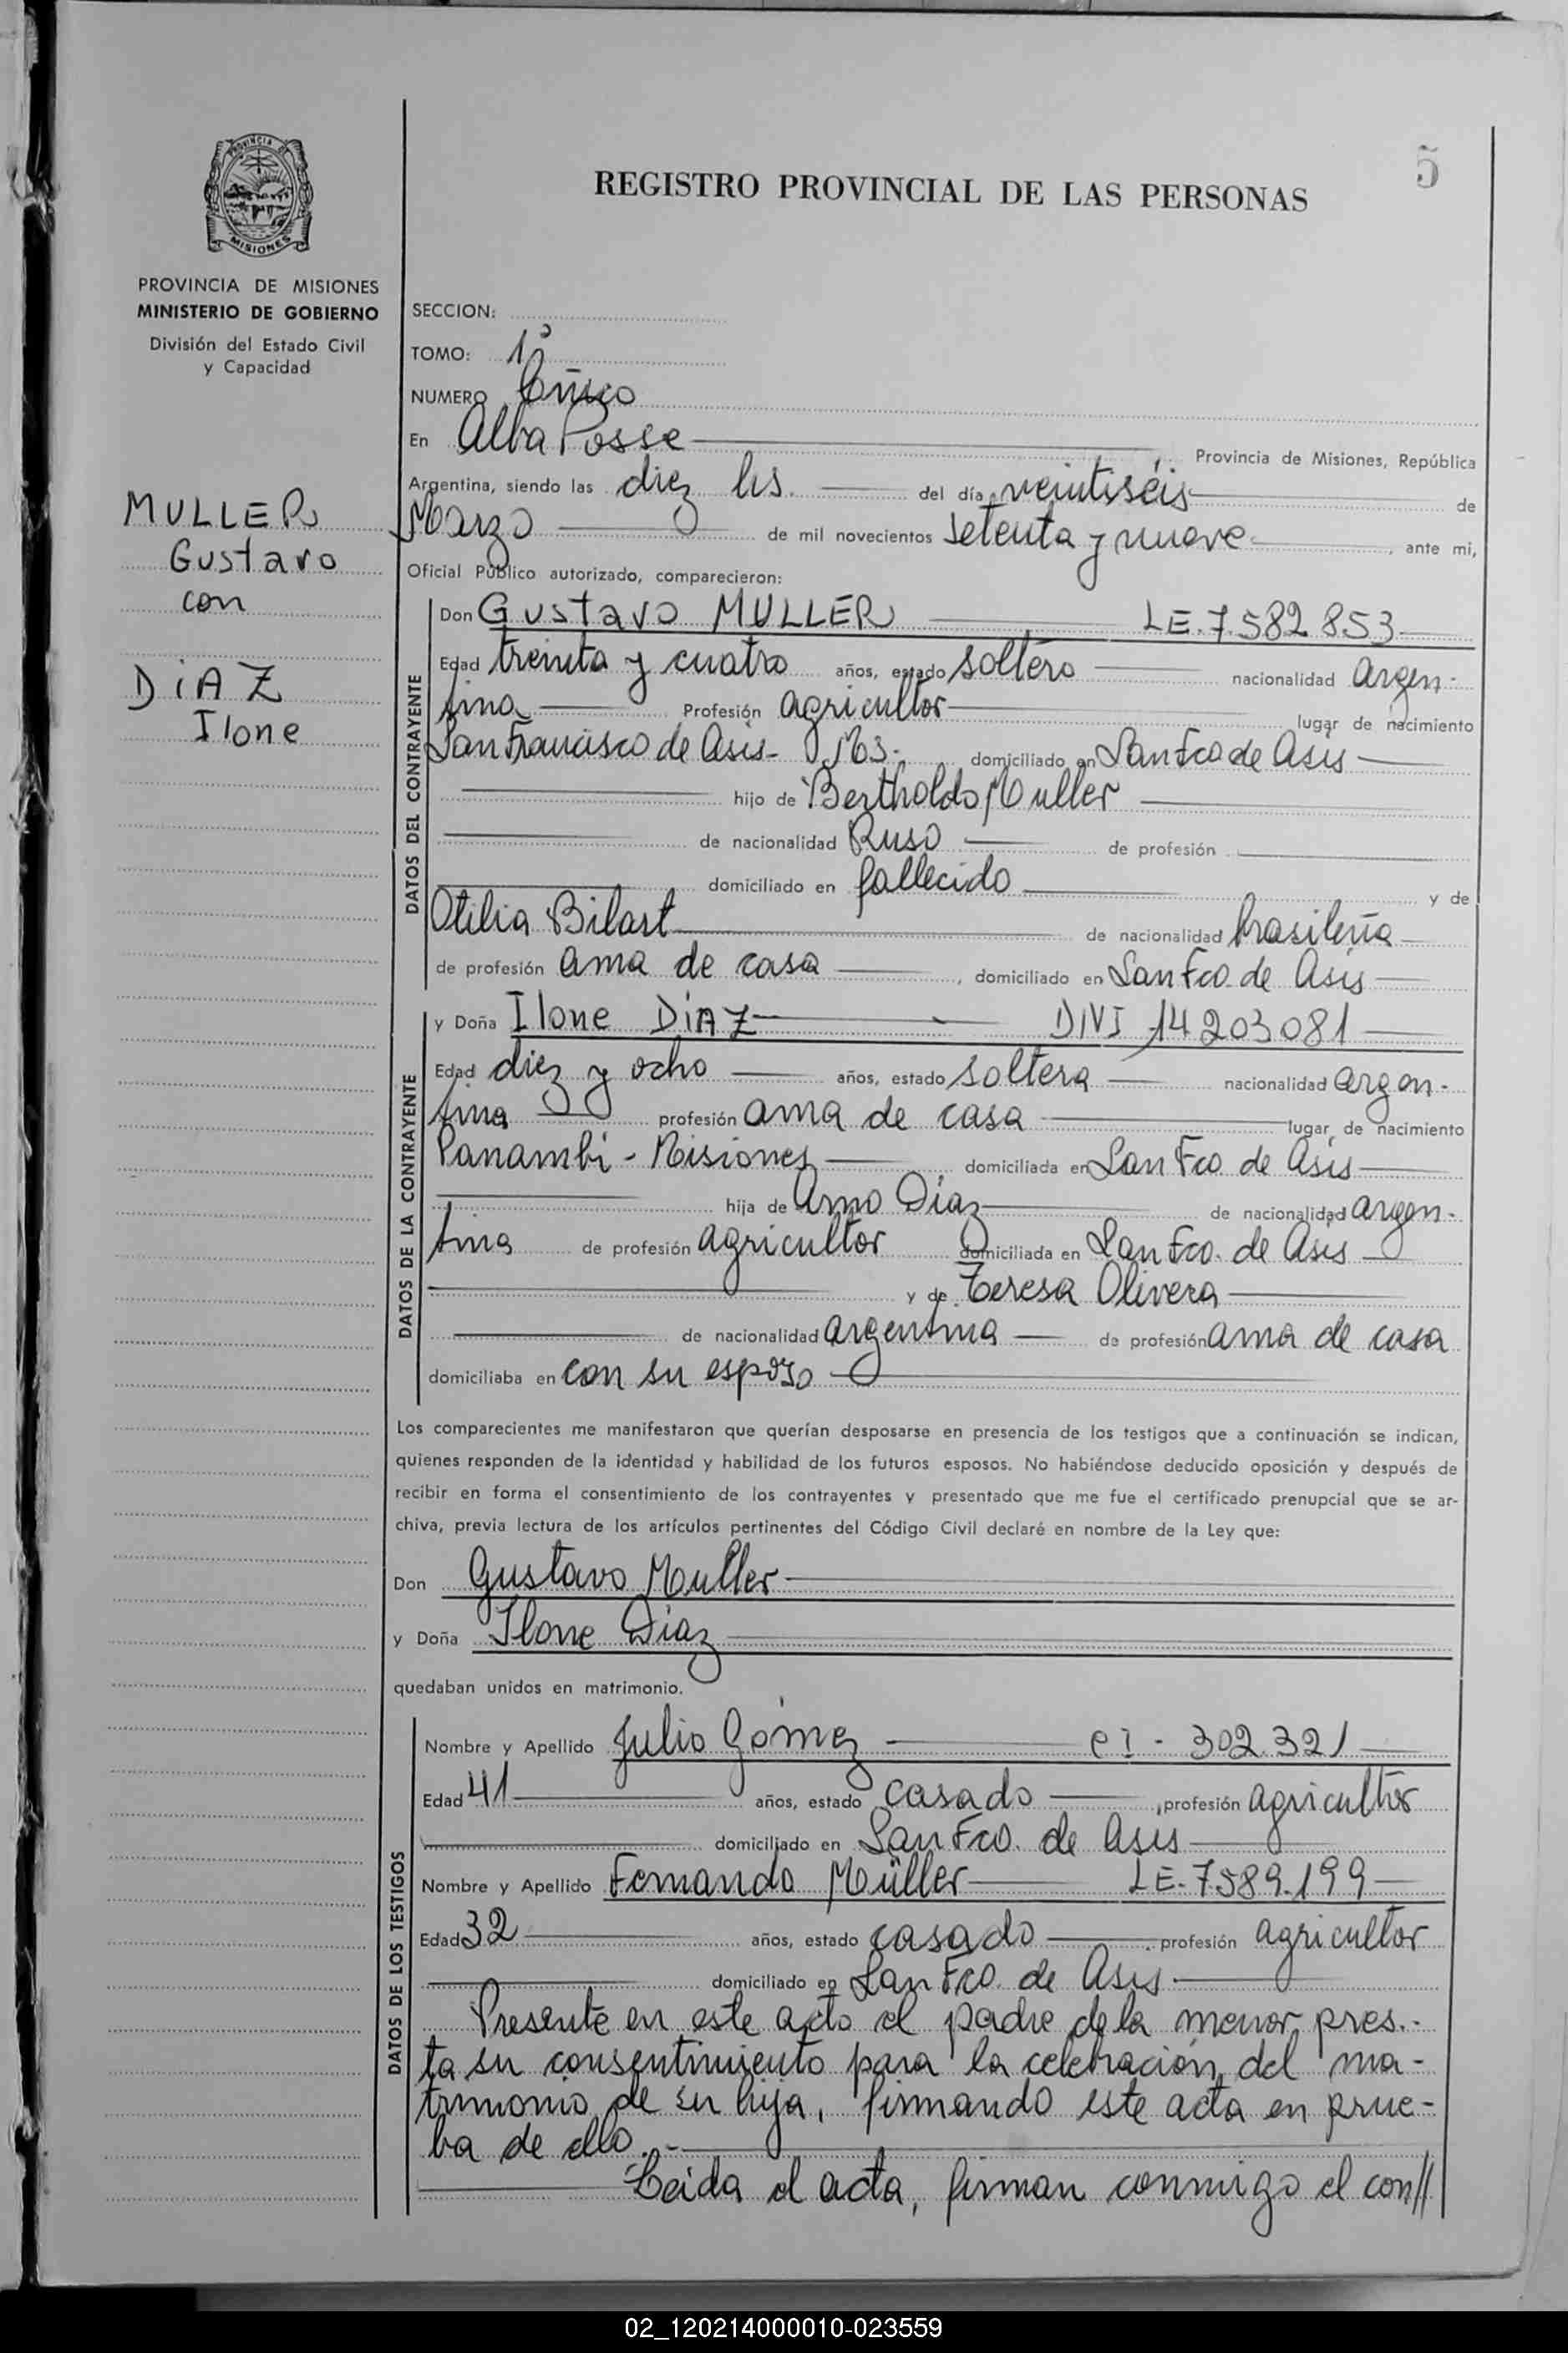 5
REGISTRO PROVINCIAL DE LAS PERSONAS
PROVINCIA DE
MISIONES
PROVINCIA DE MISIONES
MINISTERIO DE GOBIERNO
División del Estado Civil
y Capacidad
MULLER
Gustavo
con
DiAZ
Ilone
SECCION:
TOMO: 1º
NUMERO Único
En Alba Posse Provincia de Misiones, República
Argentina, siendo las diez hs. del día veintiséis de
Marzo de mil novecientos setenta y nueve, ante mi,
Oficial Público autorizado, comparecieron:
DATOS DEL CONTRAYENTE
Don Gustavo MULLER LE.7.582.853
Edad treinta y cuatro años, estado soltero nacionalidad argen-
tina Profesión agricultor lugar de nacimiento
San Francisco de Asis- Ms. domiciliado en San Fco de Asis
hijo de Bertholdo Muller
de nacionalidad Ruso de profesión
domiciliado en fallecido y de
Otilia Bilart de nacionalidad brasileña
de profesión ama de casa, domiciliado en San Fco. de Asis
DATOS DE LA CONTRAYENTE
y Doña Ilone DiAZ DNI 14203081
Edad diez y ocho años, estado soltera nacionalidad argen-
tina profesión ama de casa lugar de nacimiento
Panambi - Misiones domiciliada en San Fco de Asis
hija de Arno Diaz de nacionalidad argen-
tina de profesión agricultor domiciliada en San Fco. de Asis
y de Teresa Olivera
de nacionalidad argentina de profesión ama de casa
domiciliaba en con su esposo
Los comparecientes me manifestaron que querían desposarse en presencia de los testigos que a continuación se indican,
quienes responden de la identidad y habilidad de los futuros esposos. No habiéndose deducido oposición y después de
recibir en forma el consentimiento de los contrayentes y presentado que me fue el certificado prenupcial que se ar-
chiva, previa lectura de los artículos pertinentes del Código Civil declaré en nombre de la Ley que:
Don Gustavo Muller
y Doña Ilone Diaz
quedaban unidos en matrimonio.
DATOS DE LOS TESTIGOS
Nombre y Apellido Julio Gómez CI - 302.321
Edad 41 años, estado casado, profesión agricultor
domiciliado en San Fco. de Asis
Nombre y Apellido Fernando Müller LE-7.589.199
Edad 32 años, estado casado profesión agricultor
domiciliado en San Fco. de Asis
Presente en este acto el padre de la menor pres.-
ta su consentimiento para la celebración del ma-
trimonio de su hija, firmando este acta en prue-
ba de ello.-
Leida el acta, firman conmigo el con//
02_120214000010-023559